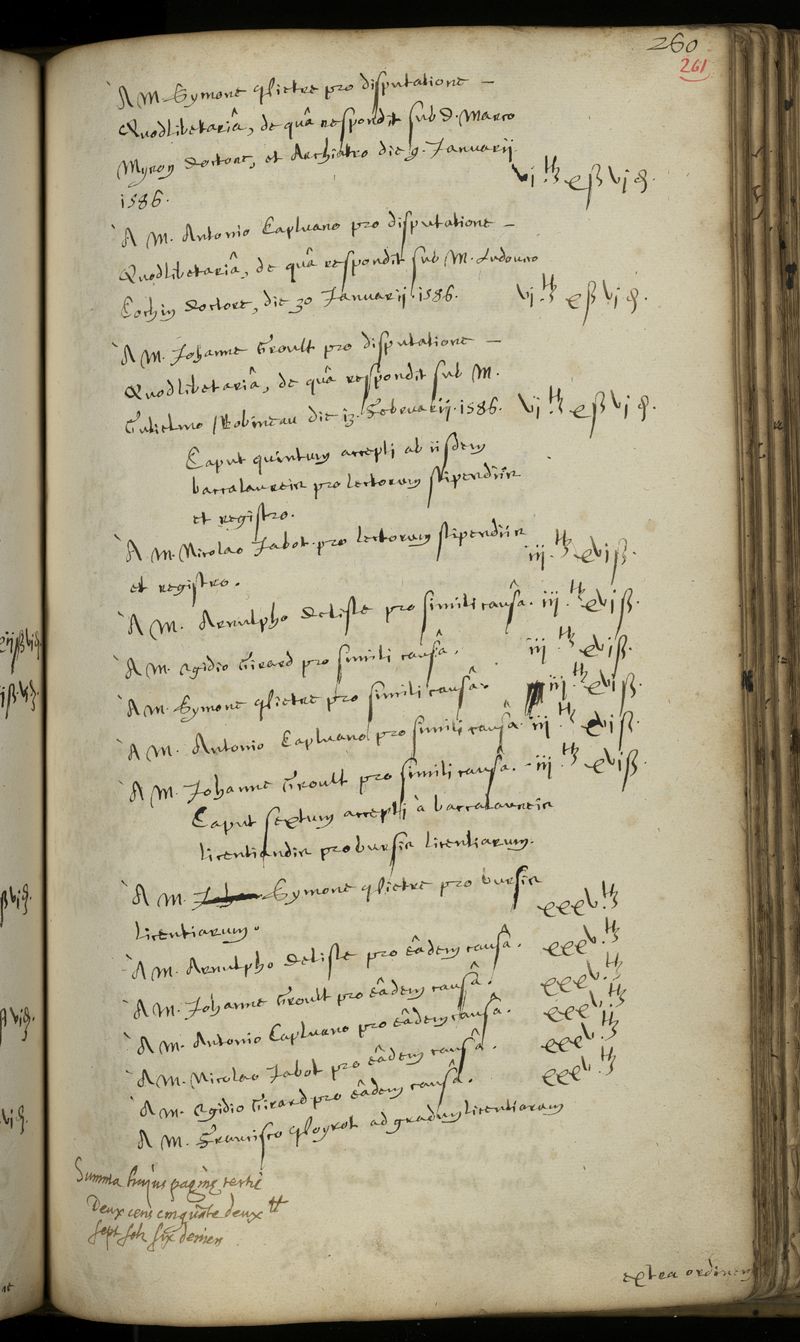 260
261
A M. Symone Pietre pro disputatione –
Quodlibetariâ, de quâ respondit sub D. Marco
Myron Doctore, et Archiatro die 9. Januarii
1586. vi tt xß vi d.
A M. Antonio Capluano pro disputatione –
Quodlibetariâ, de quâ respondit sub M. Ludovico
Cochin Doctore, die 30 Januarii. 1586. vi tt xß vi d.
A M. Johanne Groult pro disputatione –
Quodlibetariâ, de quâ respondit sub M.
Gulielmo Robineau die 13. Februarii. 1586. vi tt xß vi d.
Caput quintum accepti ab iisdem
baccalaureis pro lectorum stipendiis
et registro.
A M. Nicolao Jabot. pro lectorum stipendiis
et registro. iii tt xvi ß.
A M. Arnulpho Deliste pro simili causâ. iii tt xvi ß.
A M. Egidio Girard pro simili causâ. iii tt xvi ß.
A M. Symone Pietre pro simili causâ. iii tt xvi ß.
A M. Antonio Capluano pro simili causâ. iii tt xvi ß.
A M. Johanne Groult pro simili causâ. iii tt xvi ß.
Caput sextum accepti à baccalaureis
licentiandis pro bursis licentiarum.
A M. Symone Pietre pro bursis
licentiarum. xxxv. tt
A M. Arnulpho Deliste pro eâdem causâ. xxxv. tt
A M. Johanne Groult pro eâdem causâ. xxxv. tt
A M. Antonio Capluano pro eâdem causâ. xxxv. tt
A M. Nicolao Jabot pro eâdem causâ. xxxv. tt
A M. Egidio Girard pro eâdem causâ. xxxv. tt
A M. Francisco Ployrot ad gradum licentiarum
Summa huius paginæ tertiæ
Deux cens cinquãte deux tt
sept solz six denier
extra ordinem